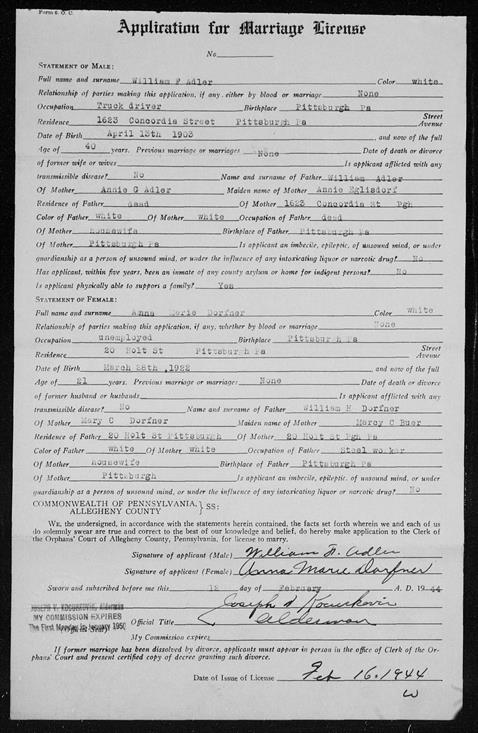 Form S. O. C.
Application for Marriage License
No.
STATEMENT OF MALE:
Full name and surname William F Adler Color white
Relationship of parties making this application, if any, either by blood or marriage None
Occupation Truck driver Birthplace Pittsburgh Pa
Residence 1623 Concordia Street Pittsburgh Pa Street Avenue
Date of Birth April 13th 1903 and now of the full
Age of 40 years. Previous marriage or marriages None Date of death or divorce
of former wife or wives Is applicant afflicted with any
transmissible disease? No Name and surname of Father William Adler
Of Mother Annie G Adler Maiden name of Mother Annie Eglisdorf
Residence of Father dead Of Mother 1623 Concordia St Pgh
Color of Father white Of Mother white Occupation of Father dead
Of Mother housewife Birthplace of Father Pittsburgh Pa
Of Mother Pittsburgh Pa Is applicant an imbecile, epileptic, of unsound mind, or under
guardianship as a person of unsound mind, or under the influence of any intoxicating liquor or narcotic drug? No
Has applicant, within five years, been an inmate of any county asylum or home for indigent persons? No
Is applicant physically able to support a family? Yes
STATEMENT OF FEMALE:
Full name and surname Anna Marie Dorfner Color white
Relationship of parties making this application, if any, whether by blood or marriage None
Occupation unemployed Birthplace Pittsburgh Pa
Residence 20 Holt St Pittsburgh Pa Street Avenue
Date of Birth March 28th ,1922 and now of the full
Age of 21 years. Previous marriage or marriages None Date of death or divorce
of former husband or husbands Is applicant afflicted with any
transmissible disease? No Name and surname of Father William H Dorfner
Of Mother Mary C Dorfner Maiden name of Mother Marcy C Buer
Residence of Father 20 Holt St Pittsburgh Of Mother 20 Holt St Pgh Pa
Color of Father white Of Mother white Occupation of Father Steel worker
Of Mother housewife Birthplace of Father Pittsburgh Pa
Of Mother Pittsburgh Is applicant an imbecile, epileptic, of unsound mind, or under
guardianship as a person of unsound mind, or under the influence of any intoxicating liquor or narcotic drug? No
COMMONWEALTH OF PENNSYLVANIA, } SS:
ALLEGHENY COUNTY
WE, the undersigned, in accordance with the statements herein contained, the facts set forth wherein we and each of us
do solemnly swear are true and correct to the best of our knowledge and belief, do hereby make application to the Clerk of
the Orphans' Court of Allegheny County, Pennsylvania, for license to marry.
Signature of applicant (Male) William F. Adler
Signature of applicant (Female) Anna Marie Dorfner
Sworn and subscribed before me this 12 day of February A. D. 1944
Joseph V Kocurkovic
JOSEPH V. KOCURKOVIC, Alderman
MY COMMISSION EXPIRES
The First Monday in January 1950
Official Title Alderman
My Commission expires
If former marriage has been dissolved by divorce, applicants must appear in person in the office of Clerk of the Or-
phans' Court and present certified copy of decree granting such divorce.
Date of Issue of License Feb 16. 1944
W